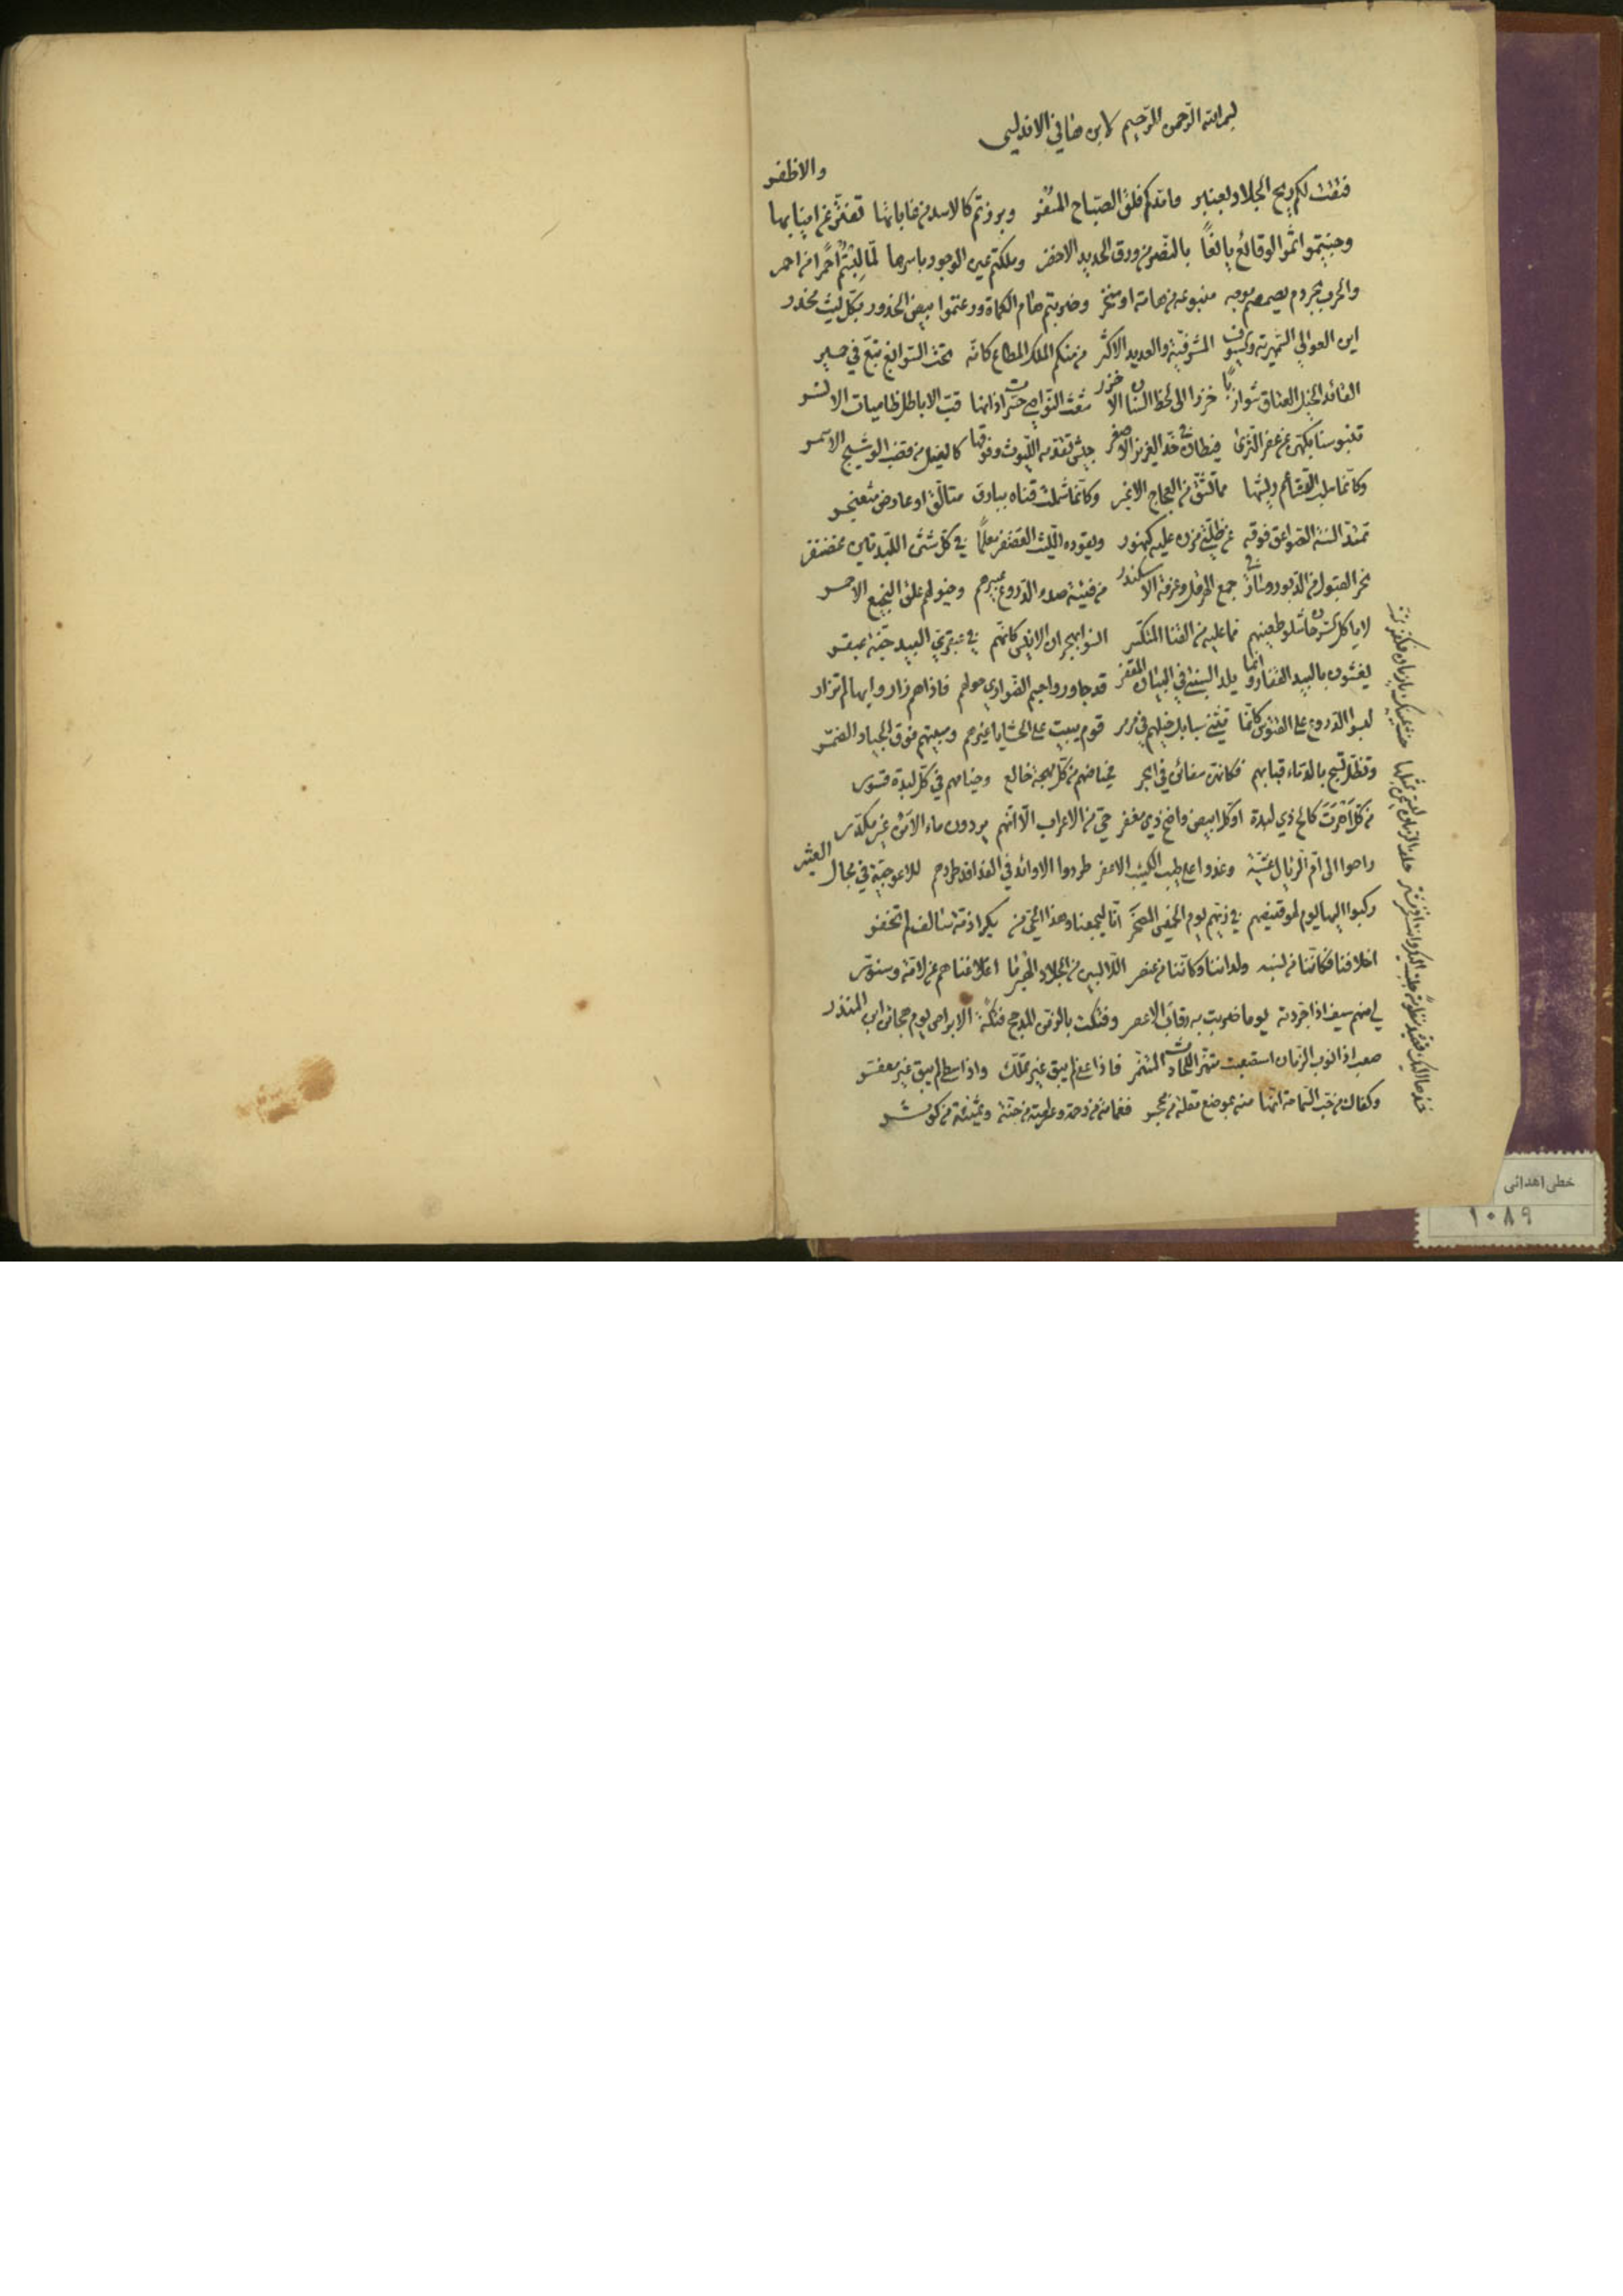 بسم الله الرحمن الرحیم لابن هانی الاندلسی
فتقت لکم ریح الجلاد بعنبر وامدکم فلق الصباح المسفر وبرزتم کالاسد من غاباتها تفتر عن انیابها
والاظفر
وجنیتموا ثمر الوقائع یانعًا بالنصر من ورق الحدید الاخضر وملکتم عین الوجود باسرها لما لبثتم احمرا من احمر
والحرب بحر دم منبوعه من هامة او منخر وضربتم هام الکماة ورعتموا بیض الخدور بکل لیث مخدر
این العوالی السمهریة والسیوف المشرفیة والعدید الاکثر من منکم الملک المطاع کانه تحت السوابغ تبع فی حمیر
القائد الخیل العتاق شوازبًا خزرا الی لحظ السنان الاخزر شعث النواصی حشرة اذانها قب الاباطل ظامیات الانسر
تنبو سنابکهن عن عفر الثری فیطان فی خد العزیز الاصغر جیش تقدمه اللیوث وفوقها کالغیل من قصب الوشیج الاسمر
وکانما سلب القشاعم ریشها مما تشق من العجاج الاغبر وکانما شملت قناه ببارق متالق او عارض مثعنجر
تمتد السنة الصواعق فوقه عن ظلتی مزن علیه کنهور ویقوده اللیث الغضنفر معلمًا فی کل شثن اللبدتین غضنفر
نحر القبول من الدبور وسار فی جمع الهرقل وعزمة الاسکندر من فتیة صدء الدروع عبیرهم وخیولهم علق النجیع الاحمر
لا یاکل السرحان شلو طعینهم مما علیه من القنا المتکسر انسوا بهجران الانیس کانهم فی عبقری البید جنة عبقر
یغشون بالبید القفار وانما یلد السبنتی فی الیباب المقفر قد جاوروا اجم الضواری حولهم فاذا هم زاروا بها لم تزار
لبسوا الدروع علی قوم یبیت علی الحشایا غیرهم ومبیتهم فوق الجیاد الضمر
وتظل تسبح بالدماء قبابهم فکانهن سفائن فی ابحر فحیاضهم من کل مهجة خالع وخیامهم فی کل لبدة قسور
من کل اهرت کالح ذی لبدة او کل ابیض واضح ذی مغفر حی من الاعراب الا انهم یردون ماء الامن غیر مکدر
راحوا الی ام الرئال عشیة وغدوا علی طیب الکثیب الاعفر طردوا الاوابد فی الفدافد طردهم للاعوجیة فی مجال العثیر
رکبوا الیها یوم لهو قنیصهم فی زیهم یوم الخمیس المصحر انا لیجمعنا وهذا الحی من بکر اذمة سالف لم تخفر
اخلافنا فکاننا من نسبه ولداتنا وکاننا من عنصر اللابسین من الجلاد الهبر ما اغناهم عن لامة وسنور
لی منهم سیف اذا جردته یوما ضربت به رقاب الاعصر وفتکت بالزمن المدجج فتکة البراض یوم هجائن ابن المنذر
صعب اذا نوب الزمان استصعبت متنمر للحادث المتنمر فاذا عفا لم یبق غیر مملک واذا سطا لم یبق غیر معفر
وکفاک من حب السماحة انها منه بموضع مقلة من محجر فغمامه من رحمة وعراصه من جنة ویمینه من کوثر
خطی اهدائی
۱۰۸۹